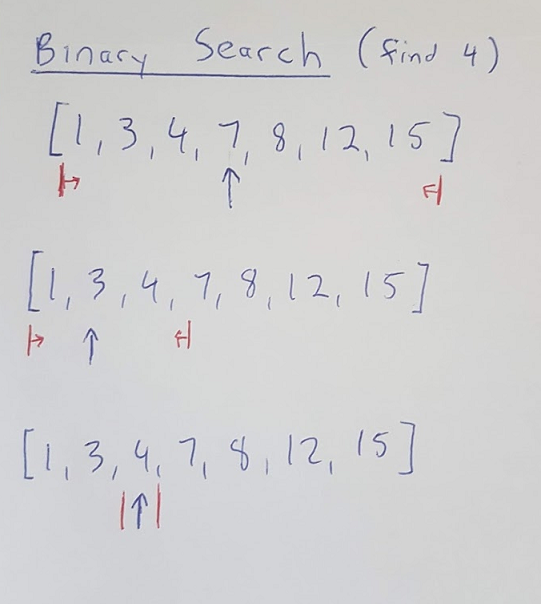 Binary Search (find 4)
[1, 3, 4, 7, 8, 12, 15]
[1, 3, 4, 7, 8, 12, 15]
[1, 3, 4, 7, 8, 12, 15]